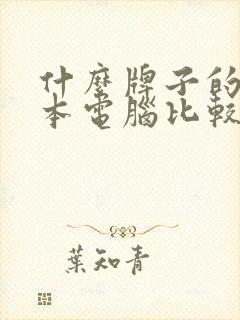 什麼牌子的
本電腦比較
葉知青